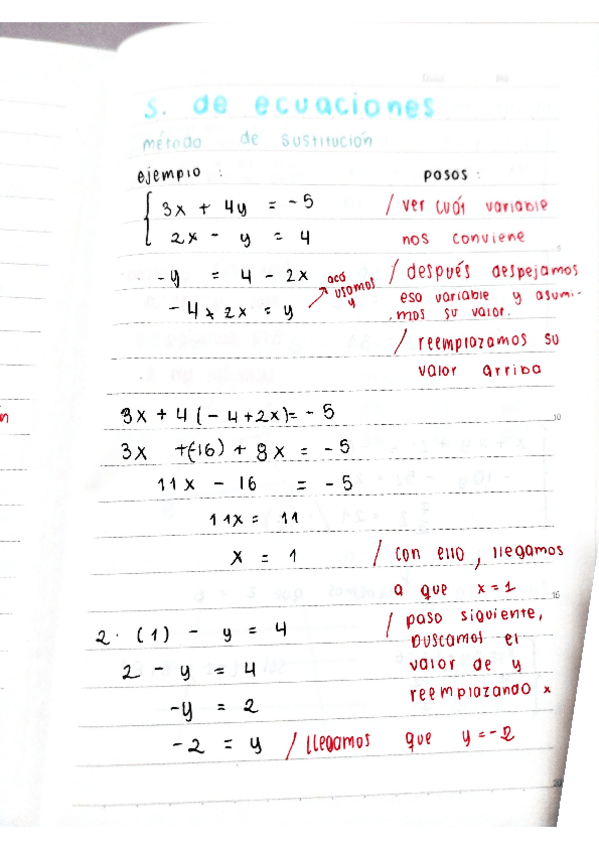 s. de ecuaciones
método de sustitución
ejemplo :
3x + 4y = -5
2x - y = 4
-y = 4 - 2x
-4 + 2x = y
acá usamos y
3x + 4 (-4+2x)= -5
3x +(-16) + 8x = -5
11x - 16 = -5
11x = 11
x = 1
2 · (1) - y = 4
2 - y = 4
-y = 2
-2 = y / llegamos que y=-2
pasos :
/ ver cuál variable
nos conviene
/ después despejamos
esa variable y asumi-
mos su valor.
/ reemplazamos su
valor arriba
/ con ello, llegamos
a que x=1
/ paso siguiente,
buscamos el
valor de y
reemplazando x
10